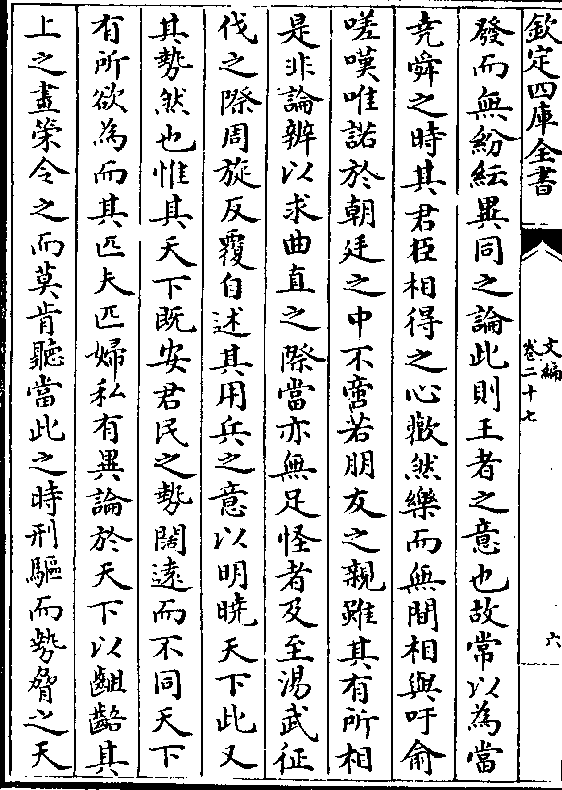 欽定四庫全書
文編
卷二十七
六
發而無紛紜異同之論此則王者之意也故常以為當
堯舜之時其君臣相得之心歡然樂而無間相與吁俞
嗟嘆唯諾於朝廷之中不啻若朋友之親雖其有所相
是非論辨以求曲直之際當亦無足怪者及至湯武征
伐之際周旋反覆自述其用兵之意以明曉天下此又
其勢然也惟其天下既安君民之勢闊遠而不同天下
有所欲為而其匹夫匹婦私有異論於天下以齟齬其
上之畫策令之而莫肯聽當此之時刑驅而勢脅之天